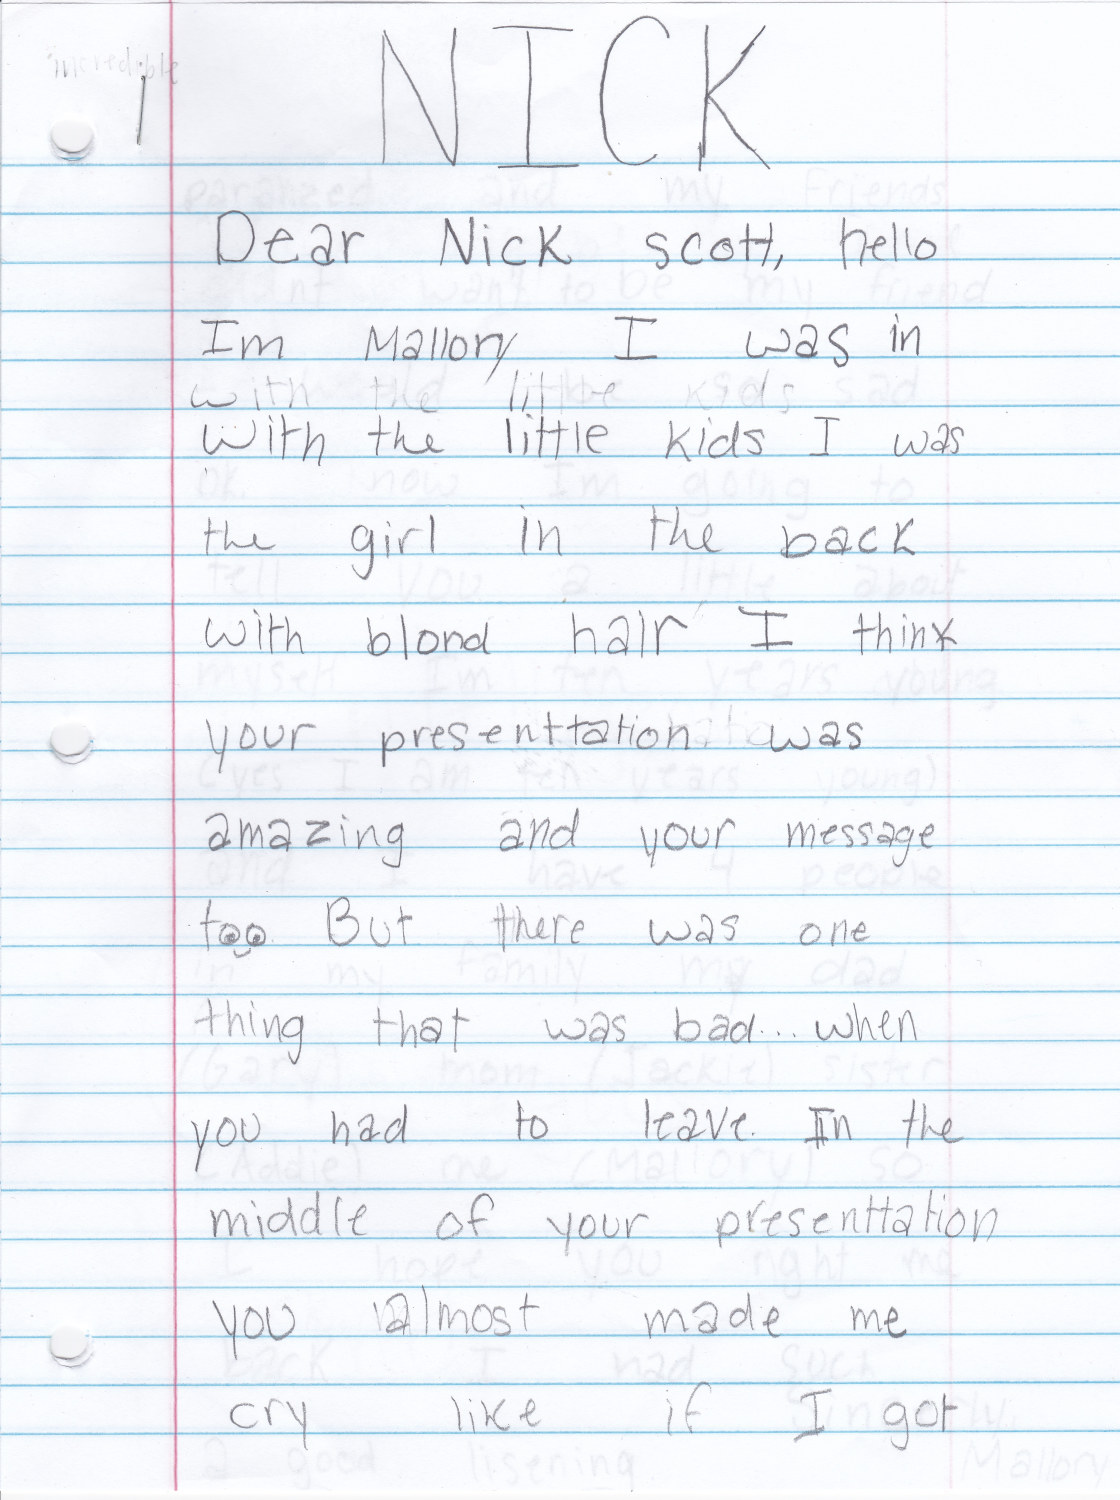 incredible
NICK
Dear Nick scott, hello
Im Mallory I was in
with the little kids I was
the girl in the back
with blond hair I think
your presenttation was
amazing and your message
too But there was one
thing that was bad... when
you had to leave. In the
middle of your presenttation
you almost made me
cry like if I got